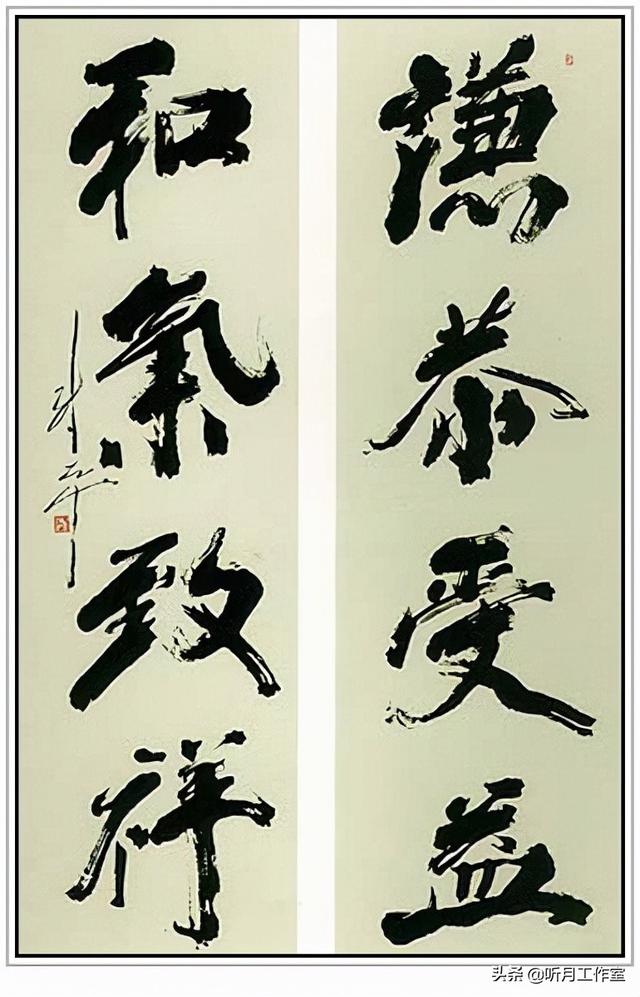 謙恭受益
和氣致祥
头条 @听月工作室